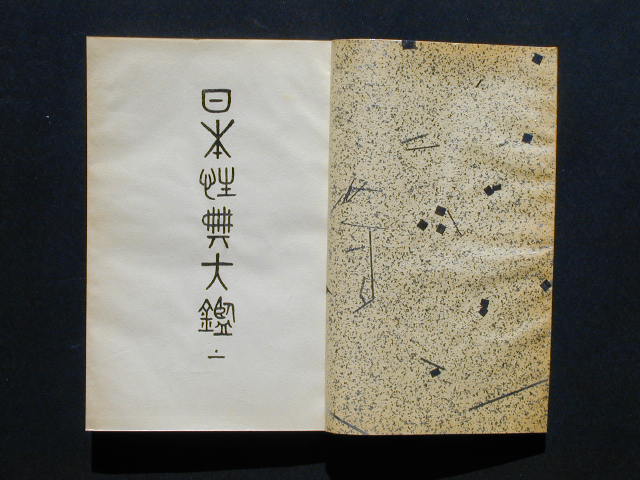 日本性典大鑑・一